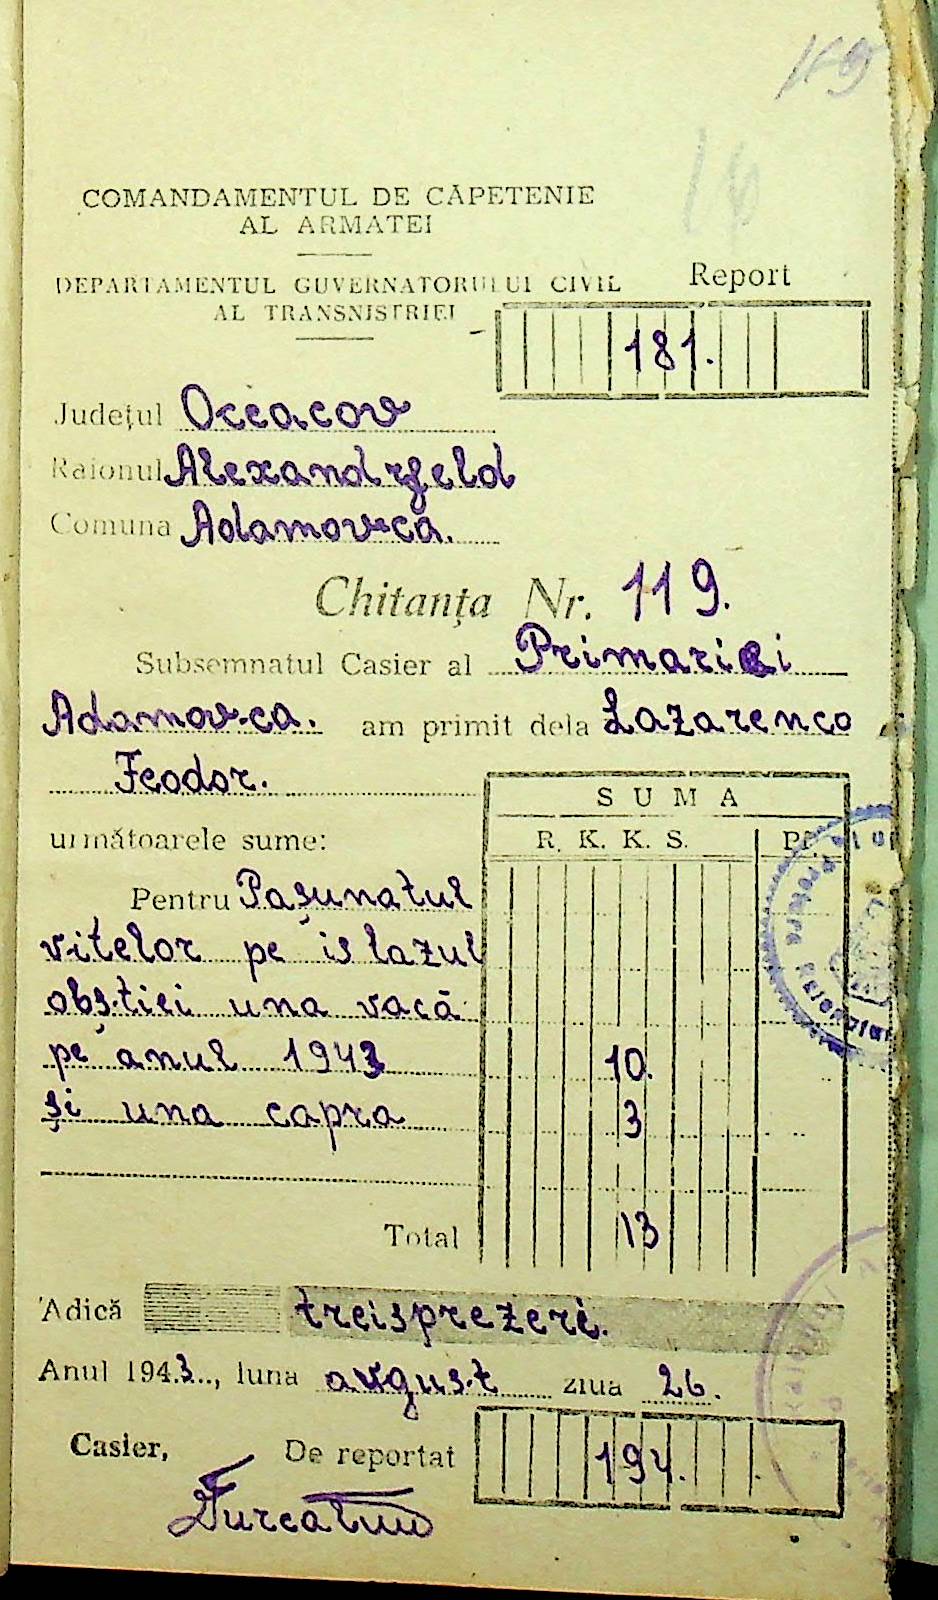 119
16
COMANDAMENTUL DE CĂPETENIE
AL ARMATEI
DEPARTAMENTUL GUVERNATORULUI CIVIL
AL TRANSNISTRIEI
Report
181.
Județul Oceacov
Raionul Alexandrfeld
Comuna Adamovca.
Chitanța Nr. 119.
Subsemnatul Casier al Primariei
Adamovca. am primit dela Lazarenco
Feodor.
următoarele sume:
SUMA
R. K. K. S. Pf.
Pentru Pașunatul
vitelor pe islazul
obștiei una vacă
pe anul 1943 10.
și una capra 3
Total 13
Adică treisprezeri.
Anul 1943.., luna avgust ziua 26.
Casier, De reportat 194.